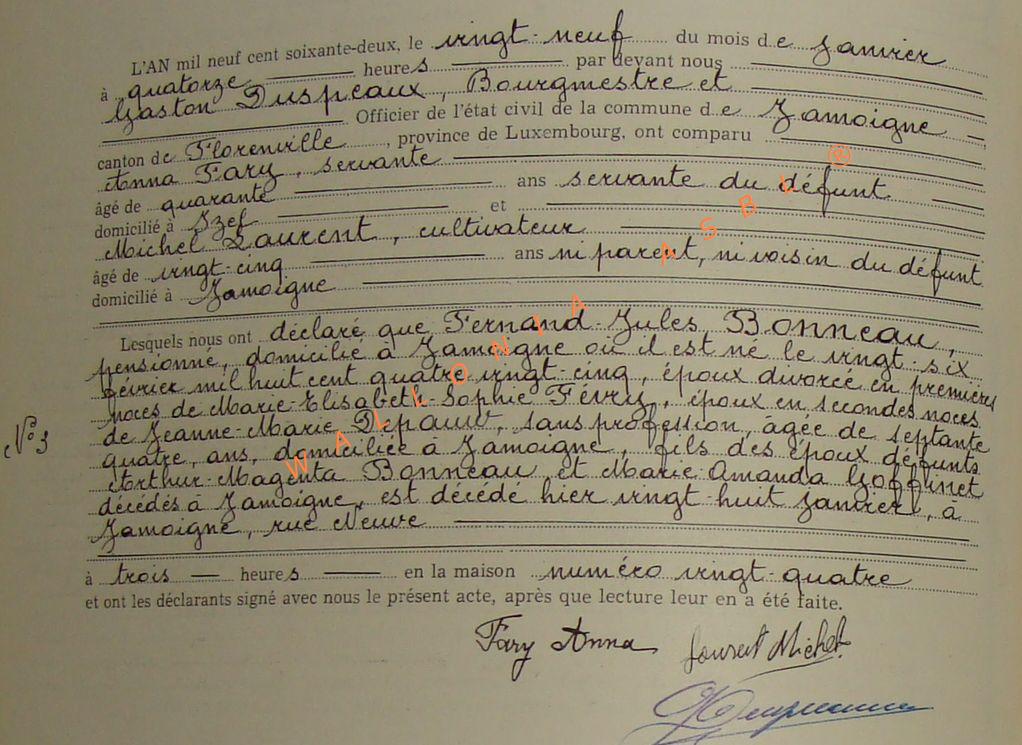 L'AN mil neuf cent soixante-deux, le vingt-neuf du mois de janvier
à quatorze heures par devant nous
Gaston Duspeaux, Bourgmestre et
Officier de l'état civil de la commune de Jamoigne
canton de Florenville, province de Luxembourg, ont comparu
Anna Fary, servante
âgé de quarante ans servante du défunt
domicilié à Izel et
Michel Laurent, cultivateur
âgé de vingt-cinq ans ni parent, ni voisin du défunt
domicilié à Jamoigne
Lesquels nous ont déclaré que Fernand-Jules Bonneau,
pensionné, domicilié à Jamoigne où il est né le vingt-six
février mil huit cent quatre vingt-cinq, époux divorcé en premières
noces de Marie-Elisabeth-Sophie Févry, époux en secondes noces
N° 3
de Jeanne-Marie Depauw, sans profession, agée de septante
quatre, ans, domiciliée à Jamoigne, fils des époux défunts
Arthur-Magenta Bonneau et Marie-Amanda Goffinet
décédés à Jamoigne, est décédé hier vingt-huit janvier, à
Jamoigne, rue Neuve
à trois heures en la maison numéro vingt-quatre
et ont les déclarants signé avec nous le présent acte, après que lecture leur en a été faite.
Fary Anna Laurent Michel
WALLONIA ASBL ®